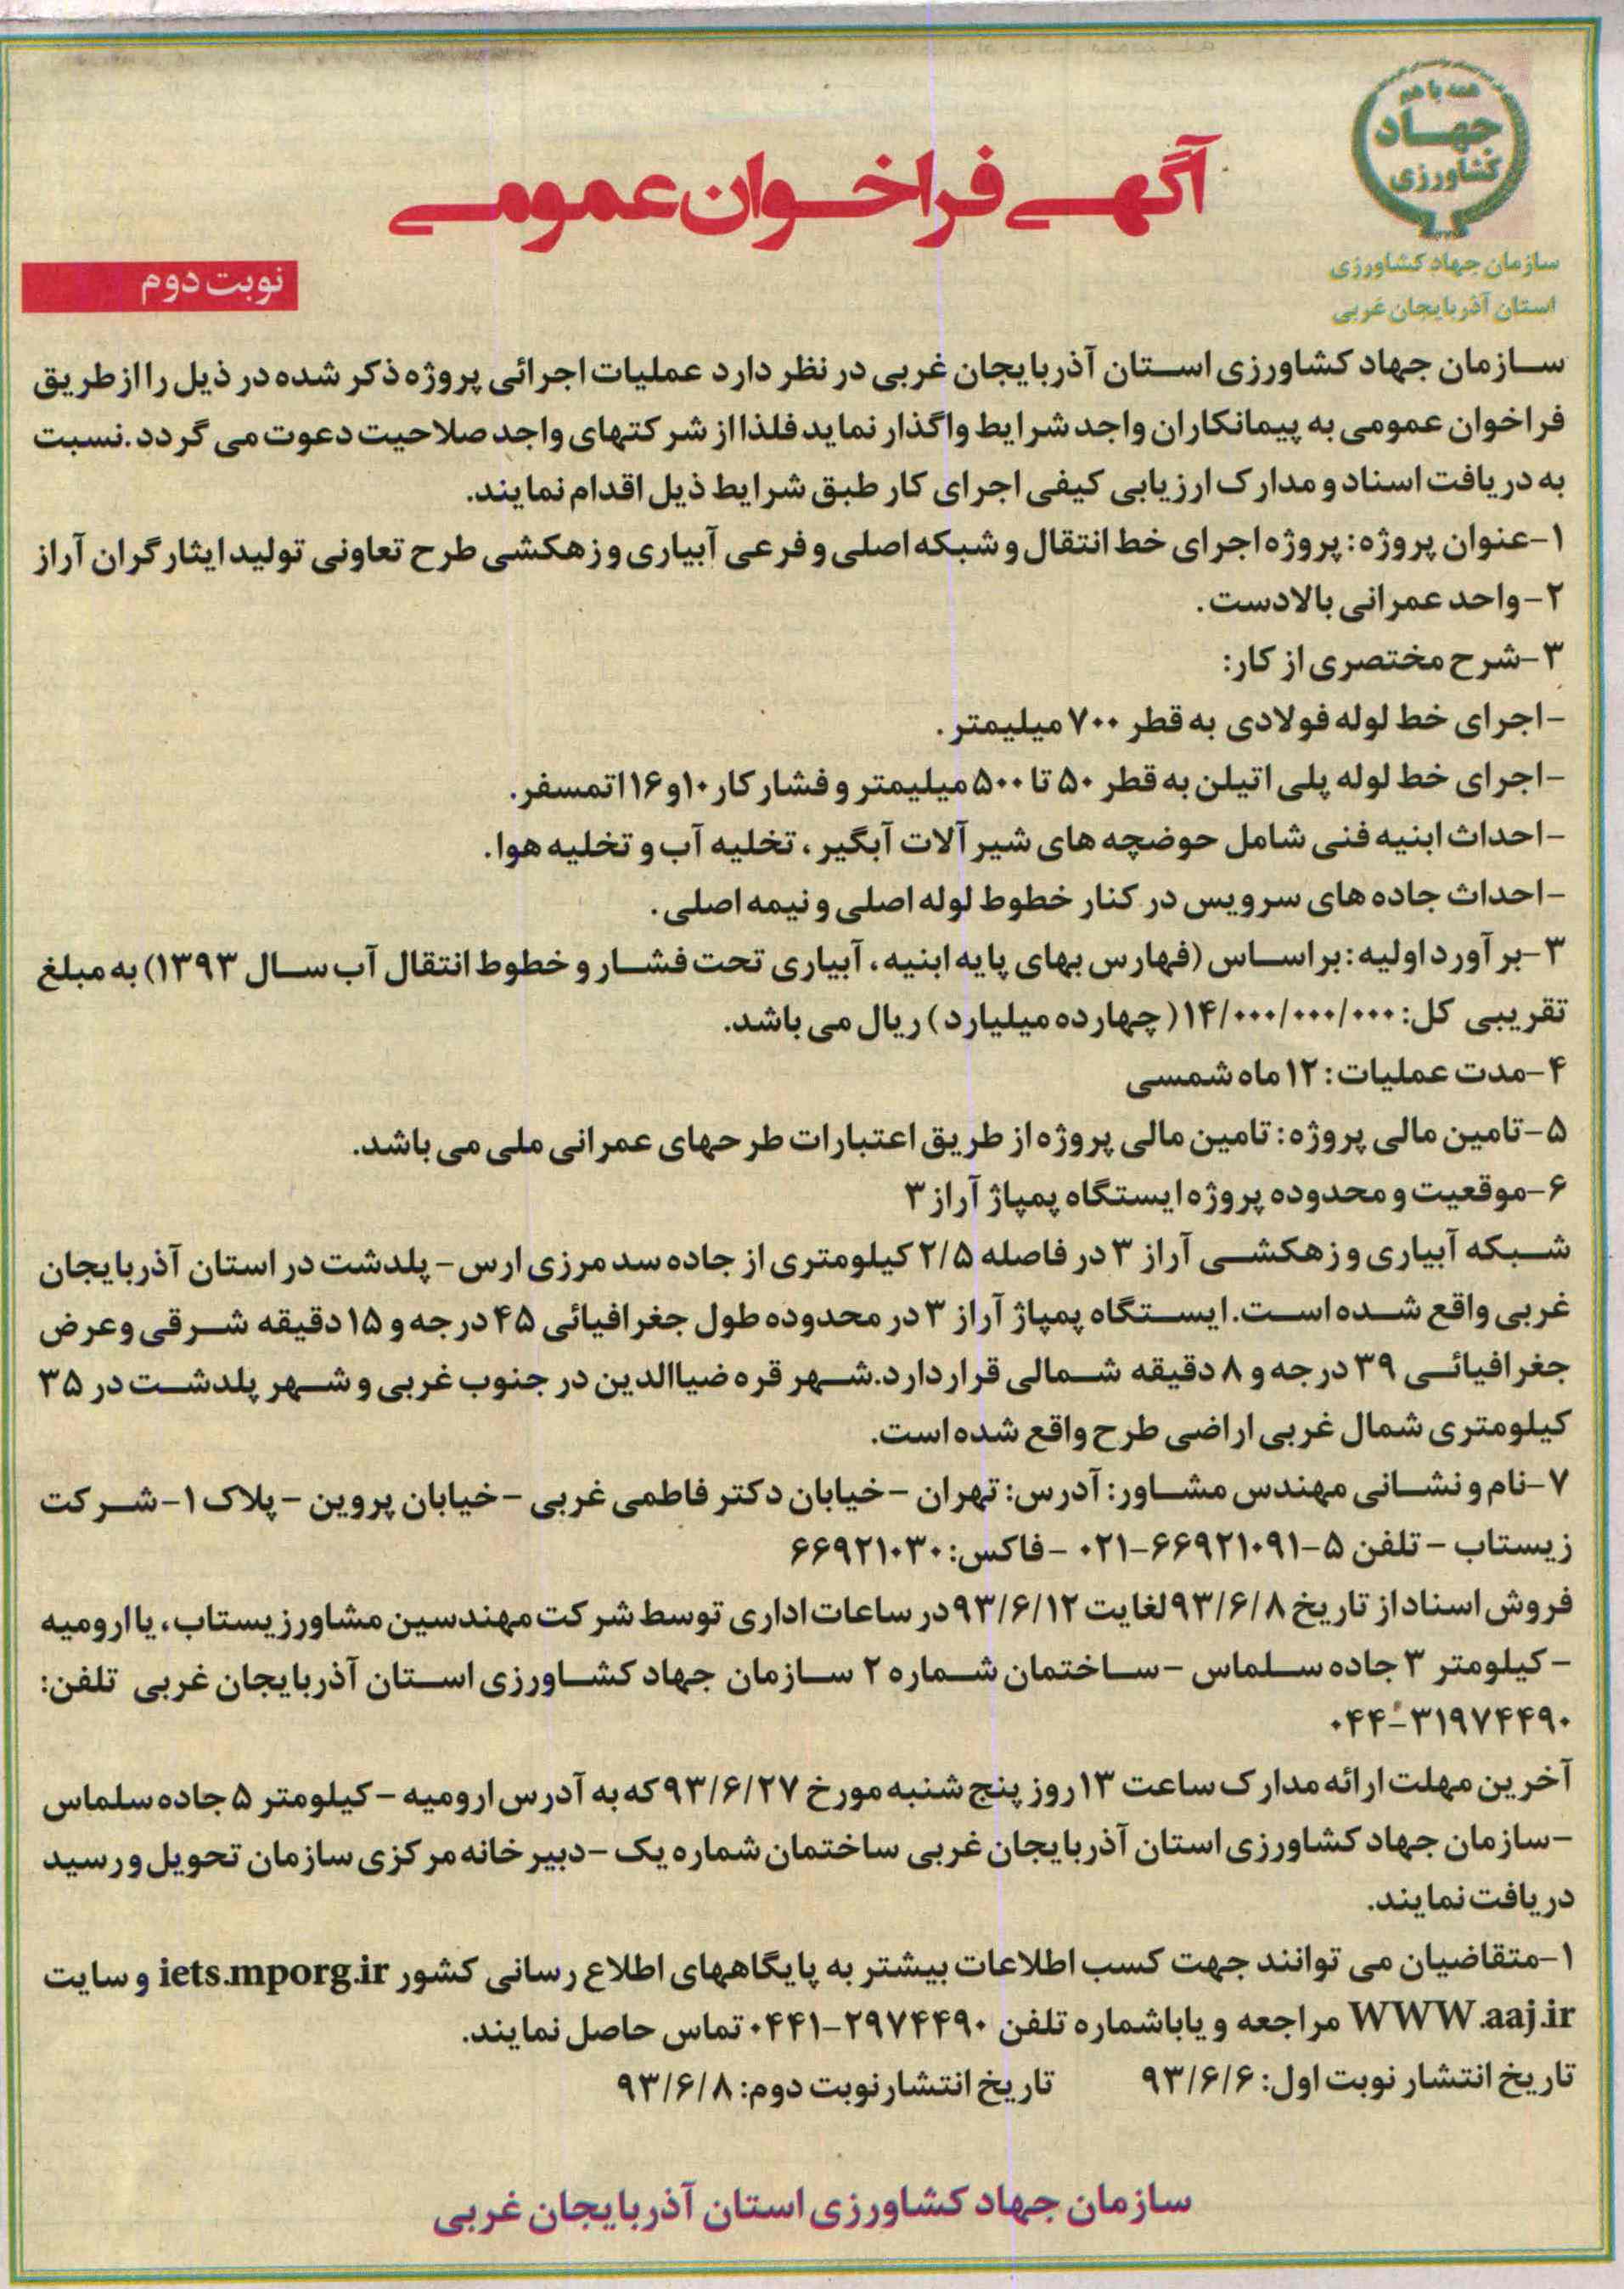 همه با هم
جهاد
کشاورزی
سازمان جهاد کشاورزی
استان آذربایجان غربی
آگهی فراخوان عمومی
نوبت دوم
سازمان جهاد کشاورزی استان آذربایجان غربی در نظر دارد عملیات اجرائی پروژه ذکر شده در ذیل را از طریق
فراخوان عمومی به پیمانکاران واجد شرایط واگذار نماید فلذا از شرکتهای واجد صلاحیت دعوت می گردد.نسبت
به دریافت اسناد و مدارک ارزیابی کیفی اجرای کار طبق شرایط ذیل اقدام نمایند.
۱-عنوان پروژه: پروژه اجرای خط انتقال و شبکه اصلی و فرعی آبیاری و زهکشی طرح تعاونی تولید ایثارگران آراز
۲-واحد عمرانی بالادست.
۳-شرح مختصری از کار:
-اجرای خط لوله فولادی به قطر ۷۰۰ میلیمتر.
-اجرای خط لوله پلی اتیلن به قطر ۵۰ تا ۵۰۰ میلیمتر و فشار کار ۱۰و۱۶ اتمسفر.
-احداث ابنیه فنی شامل حوضچه های شیر آلات آبگیر، تخلیه آب و تخلیه هوا.
-احداث جاده های سرویس در کنار خطوط لوله اصلی و نیمه اصلی.
۳-بر آورد اولیه: براساس (فهارس بهای پایه ابنیه، آبیاری تحت فشار و خطوط انتقال آب سال ۱۳۹۳) به مبلغ
تقریبی کل: ۱۴/۰۰۰/۰۰۰/۰۰۰( چهارده میلیارد) ریال می باشد.
۴-مدت عملیات: ۱۲ ماه شمسی
۵-تامین مالی پروژه: تامین مالی پروژه از طریق اعتبارات طرحهای عمرانی ملی می باشد.
۶-موقعیت و محدوده پروژه ایستگاه پمپاژ آراز ۳
شبکه آبیاری و زهکشی آراز ۳ در فاصله ۲/۵ کیلومتری از جاده سد مرزی ارس- پلدشت در استان آذربایجان
غربی واقع شده است. ایستگاه پمپاژ آراز ۳ در محدوده طول جغرافیائی ۴۵ درجه و ۱۵ دقیقه شرقی و عرض
جغرافیائی ۳۹ درجه و ۸ دقیقه شمالی قرار دارد.شهر قره ضیاالدین در جنوب غربی و شهر پلدشت در ۳۵
کیلومتری شمال غربی اراضی طرح واقع شده است.
۷-نام و نشانی مهندس مشاور: آدرس: تهران -خیابان دکتر فاطمی غربی -خیابان پروین -پلاک ۱-شرکت
زیستاب - تلفن ۵-۶۶۹۲۱۰۹۱-۰۲۱ -فاکس: ۶۶۹۲۱۰۳۰
فروش اسناد از تاریخ ۹۳/۶/۸ لغایت ۹۳/۶/۱۲ در ساعات اداری توسط شرکت مهندسین مشاور زیستاب، یا ارومیه
-کیلومتر ۳ جاده سلماس -ساختمان شماره ۲ سازمان جهاد کشاورزی استان آذربایجان غربی تلفن:
۰۴۴-۳۱۹۷۴۴۹۰
آخرین مهلت ارائه مدارک ساعت ۱۳ روز پنج شنبه مورخ ۹۳/۶/۲۷ که به آدرس ارومیه -کیلومتر ۵ جاده سلماس
-سازمان جهاد کشاورزی استان آذربایجان غربی ساختمان شماره یک -دبیرخانه مرکزی سازمان تحویل و رسید
دریافت نمایند.
۱-متقاضیان می توانند جهت کسب اطلاعات بیشتر به پایگاههای اطلاع رسانی کشور iets.mporg.ir و سایت
WWW.aaj.ir مراجعه و یا باشماره تلفن ۲۹۷۴۴۹۰-۰۴۴۱ تماس حاصل نمایند.
تاریخ انتشار نوبت اول: ۹۳/۶/۶ تاریخ انتشار نوبت دوم: ۹۳/۶/۸
سازمان جهاد کشاورزی استان آذربایجان غربی